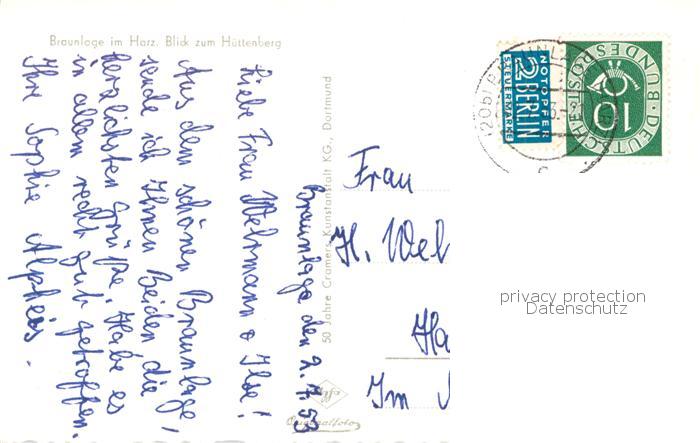 Braunlage im Harz. Blick zum Hüttenberg
Braunlage den 2.7.53
Liebe Frau Weltmann & Ilse!
Aus dem schönen Braunlage,
sende ich Ihnen Beiden, die
herzlichsten Grüße. Habe es
in allem recht gut getroffen.
Ihre Sophie
50 Jahre Cramers Kunstanstalt KG., Dortmund
Originalfoto
NOTOPFER
2 BERLIN
STEUERMARKE
DEUTSCHE BUNDESPOST
10
(20b)
Frau
H. Wel
Ha
Im
privacy protection
Datenschutz